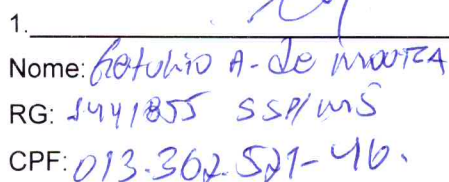 1.
Nome: Getulio A. de Moura
RG: 1441855 SSP/MS
CPF: 013.302.521-46.